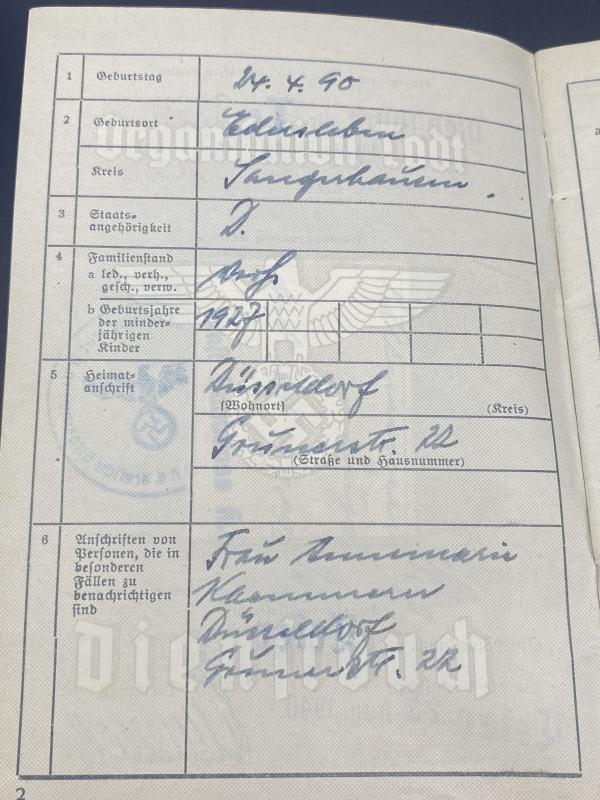 1 Geburtstag 24. 4. 90
2 Geburtsort Edersleben
Kreis Sangerhausen.
3 Staats-
angehörigkeit D.
4 Familienstand
a led., verh.,
gesch., verw. verh.
b Geburtsjahre 1927
der minder-
jährigen
Kinder
5 Heimat-
anschrift Düsseldorf
(Wohnort) (Kreis)
Grunerstr. 22
(Straße und Hausnummer)
6 Anschriften von
Personen, die in
besonderen
Fällen zu
benachrichtigen
sind
Frau Annemarie
Düsseldorf
Grunerstr. 22
Organisation Todt
Dienstbuch
2